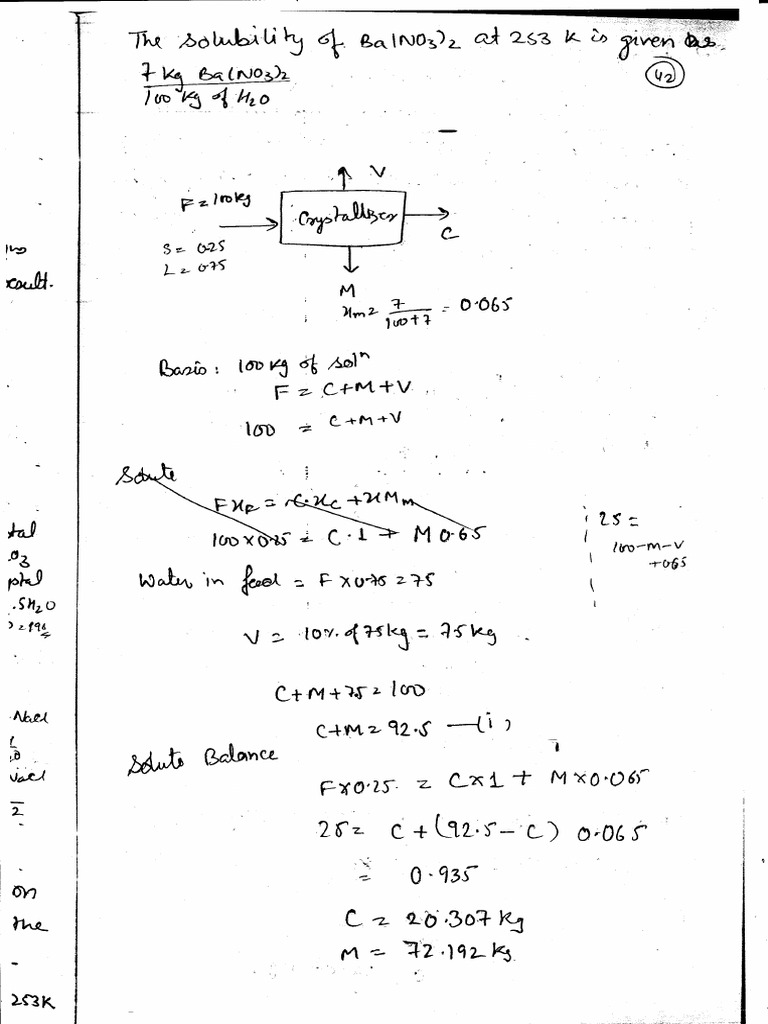 The solubility of Ba(NO3)2 at 253 K is given as
7 kg Ba(NO3)2
100 kg of H2O
42
V
F = 100kg
Crystallizer
C
S = 0.25
L = 0.75
M
xm = 7/(100+7) = 0.065
Basis : 100 kg of solⁿ
F = C+M+V
100 = C+M+V
Solute
FxF = C.xC + xMm
100 x 0.25 = C.1 + M 0.65
25 =
100-M-V
+065
Water in feed = F x 0.75 = 75
V = 10% of 75kg = 75kg
C+M+75 = 100
C+M = 92.5 —(i)
Solute Balance
F x 0.25 = C x 1 + M x 0.065
25 = C + (92.5 - C) 0.065
= 0.935
C = 20.307 kg
M = 72.192 kg
tal
O3
ptal
.5H2O
Nacl
2
on
the
-
253K